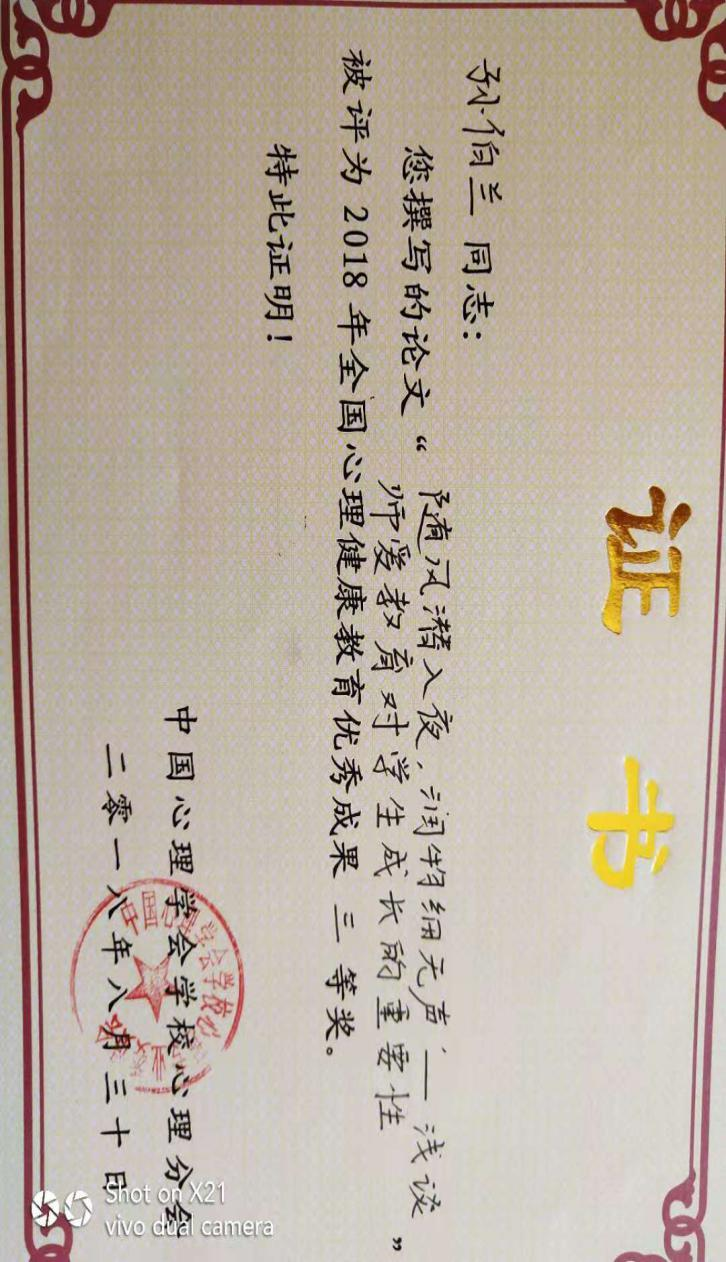 证 书
孙伯兰 同志：
您撰写的论文“随风潜入夜，润物细无声’—— 浅谈
师爱教育对学生成长的重要性”
被评为2018年全国心理健康教育优秀成果 三 等奖。
特此证明！
中国心理学会学校心理分会
二零一八年八月三十日
Shot on X21
vivo dual camera